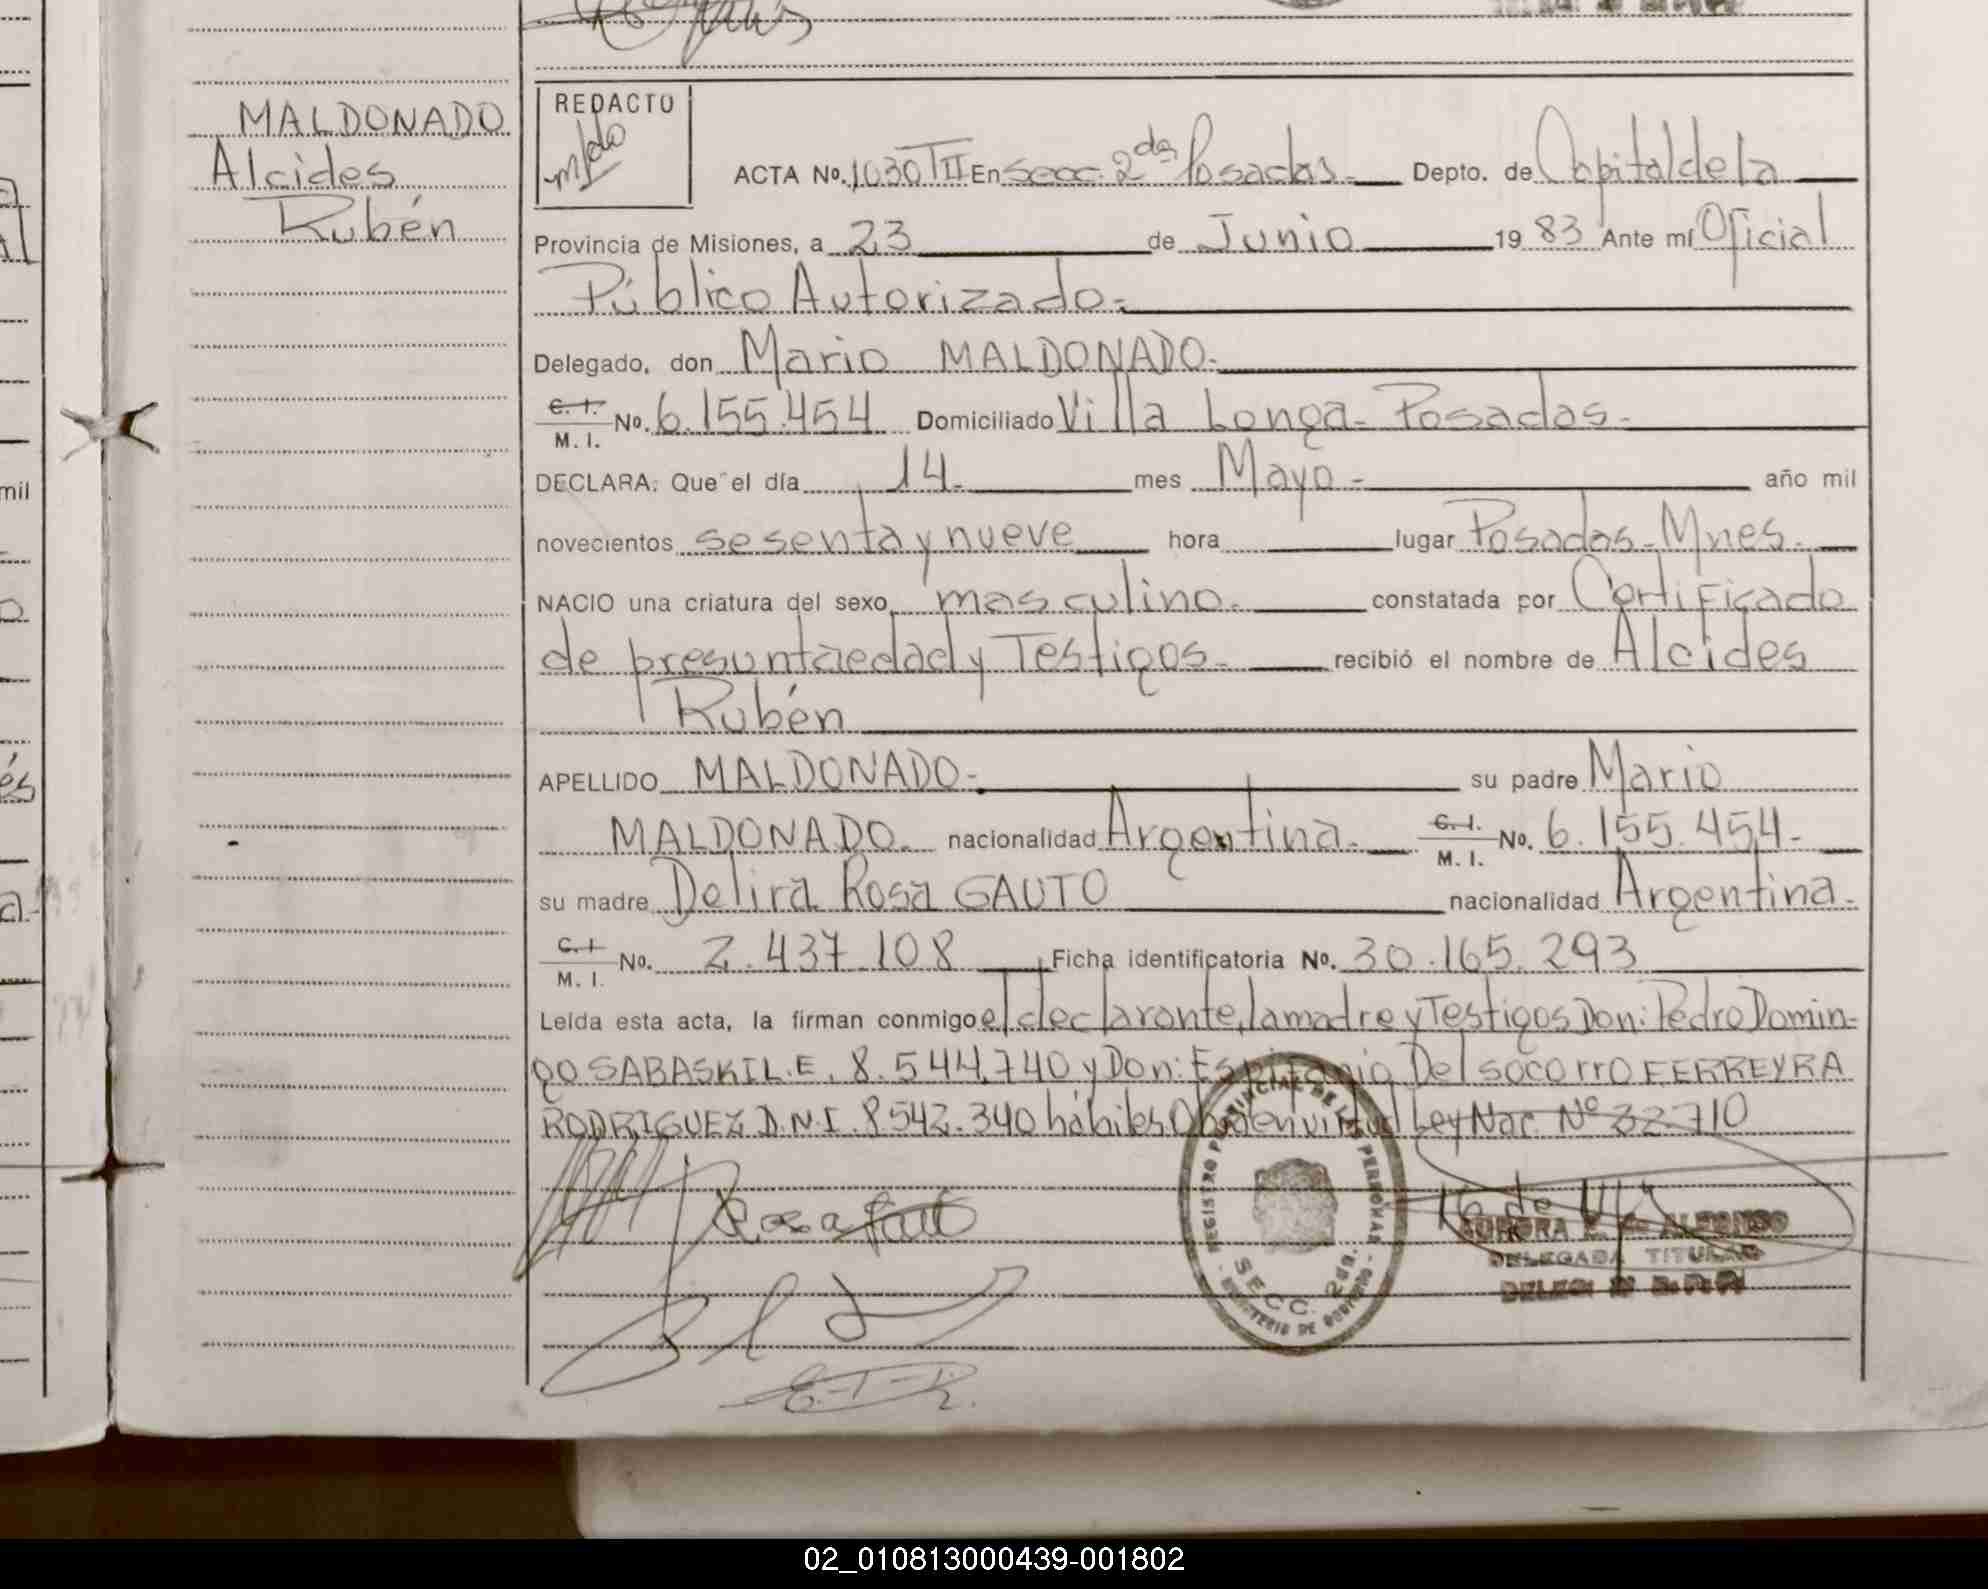 MALDONADO
Alcides
Rubén
REDACTO
ACTA No. 1030 TII En Secc. 2da Posadas. Depto. de Capital de la
Provincia de Misiones, a 23 de Junio 1983 Ante mí Oficial
Público Autorizado.-
Delegado, don Mario MALDONADO.-
C. I. M. I. No. 6.155.454 Domiciliado Villa Longa - Posadas.-
DECLARA: Que el día 14.- mes Mayo.- año mil
novecientos sesenta y nueve hora lugar Posadas - Mnes.
NACIO una criatura del sexo masculino.- constatada por Certificado
de presunta edad y Testigos.- recibió el nombre de Alcides
Rubén
APELLIDO MALDONADO.- su padre Mario
MALDONADO.- nacionalidad Argentina.- C. I. M. I. No. 6.155.454.-
su madre Delira Rosa GAUTO nacionalidad Argentina.-
C. I. M. I. No. 2.437.108 Ficha identificatoria No. 30.165.293
Leída esta acta, la firman conmigo el declarante, la madre y Testigos Don: Pedro Domin-
go SABASKI L.E. 8.544.740 y Don: Espifanio Del socorro FERREYRA
RODRIGUEZ D.N.I. 8.542.340 hábiles en virtud Ley Nac Nº 22710
Rosa Gauto
REGISTRO PROVINCIAL DE LAS PERSONAS
SECC. 2da.
MINISTERIO DE GOBIERNO
16 de
AURORA ALFONSO
DELEGADA TITULAR
02_010813000439-001802